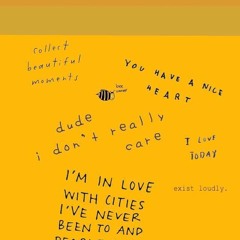 collect
beautiful
moments
YOU HAVE A NICE
HEART
dude
i don't really
care
I LOVE
TODAY
I'M IN LOVE
WITH CITIES
I'VE NEVER
BEEN TO AND
exist loudly.